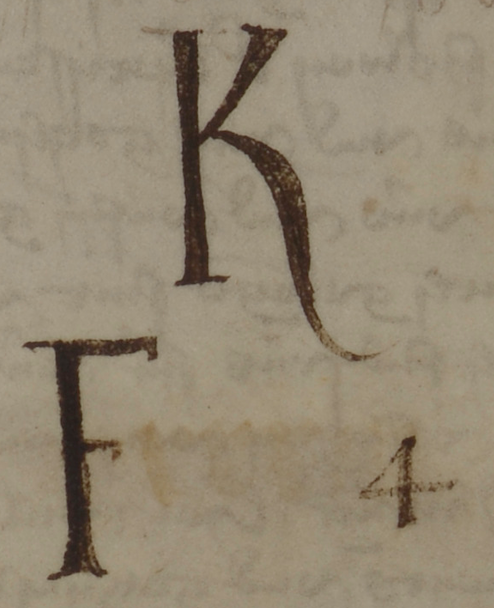 K
F 4